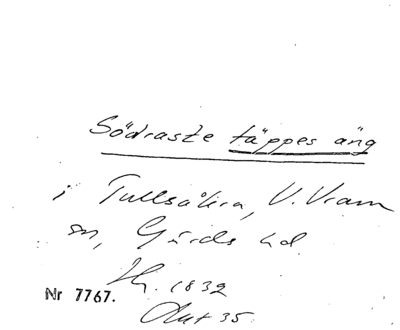 Södraste täppes äng
i Tullsåkra, V. Vram
sn, Gärds hd.
1832
Nr 7767.
Akt 35